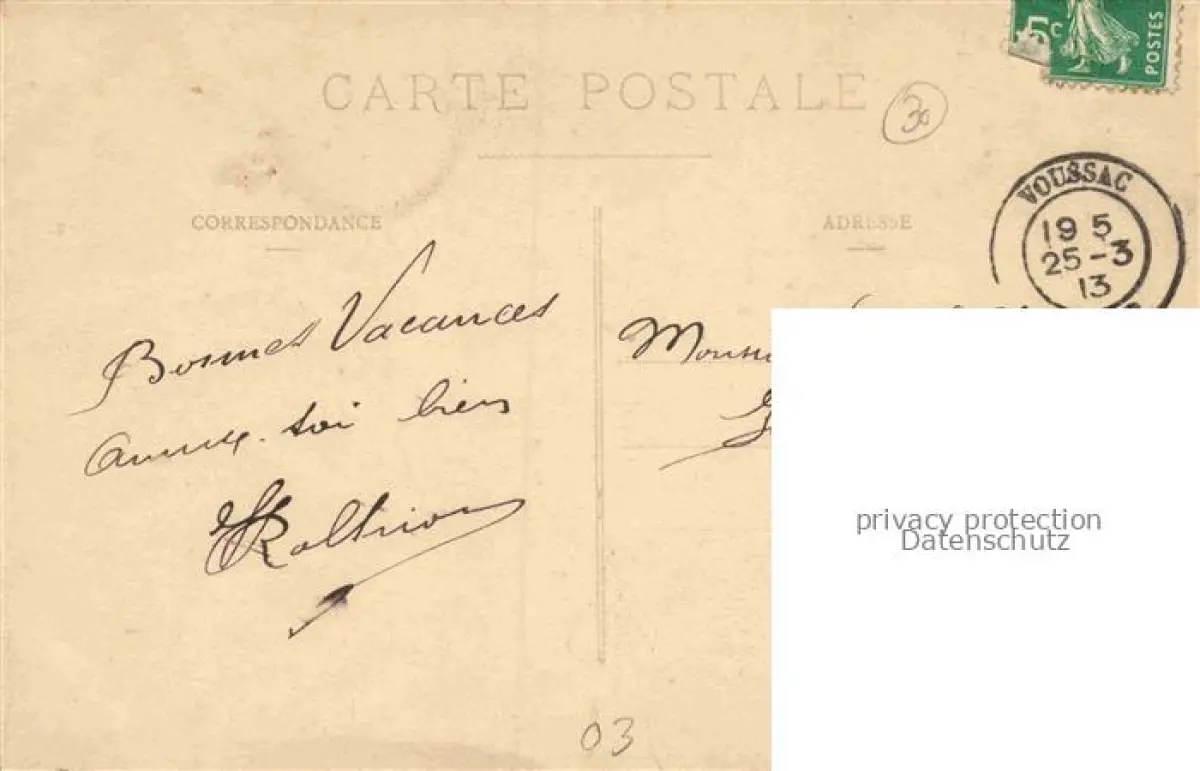 5c
POSTES
CARTE POSTALE
30
VOUSSAC
19 5
25-3
13
CORRESPONDANCE
ADRESSE
Bonnes Vacances
Amuse-toi bien
03
privacy protection
Datenschutz